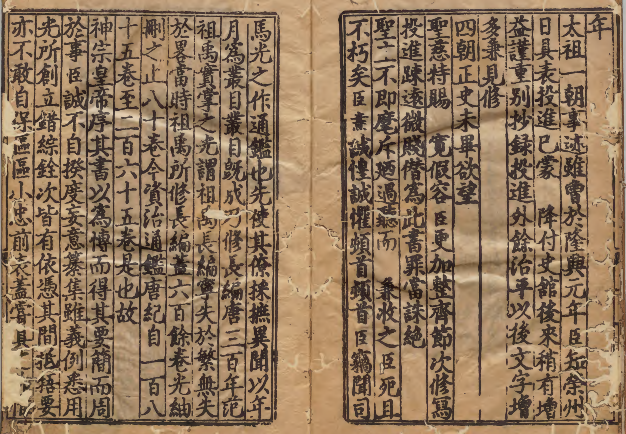 年
太祖一朝事迹雖曾於隆興元年臣知榮州
日具表投進已蒙　降付史館後來稍有增
益謹重別抄錄投進外餘治平以後文字增
多兼見修
四朝正史未畢欲望
聖慈特賜　寬假容臣更加整齊節次修寫
投進踈遠微賤僭爲此書罪當誅絕
聖上不即麾斥
不朽矣臣燾誠惶誠懼頓首頓首臣竊聞司
馬光之作通鑑也先使其僚採摭異聞以年
月爲叢目叢目旣成乃修長編唐三百年范
祖禹實掌之光謂祖禹長編寧失於繁無失
於畧當時祖禹所修長編蓋六百餘卷光紬
刪之止八十卷今資治通鑑唐紀自一百八
十五卷至二百六十五卷是也故
神宗皇帝序其書以爲博而得其要簡而周
於事臣誠不自揆度妄意纂集雖義例悉用
光所創立錯綜銓次皆有依憑其間抵牾要
亦不敢自保區區小忠前表蓋嘗具